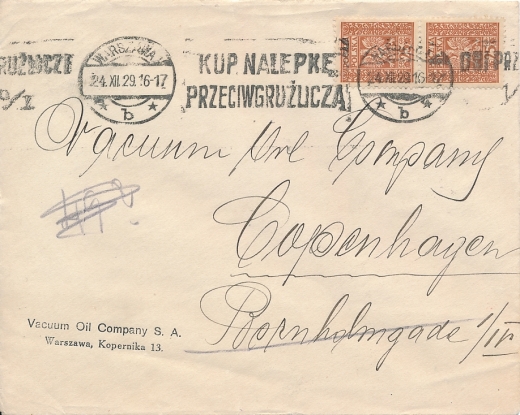 WARSZAWA
24.XII.29.16-17
* b *
RUŹLICZĄ
KUP NALEPKĘ
PRZECIWGRUŹLICZĄ
24.XII.29.16-17
* b *
Vacuum Oil Company
Copenhagen
Bornholmgade 1/IV
Vacuum Oil Company S. A.
Warszawa, Kopernika 13.